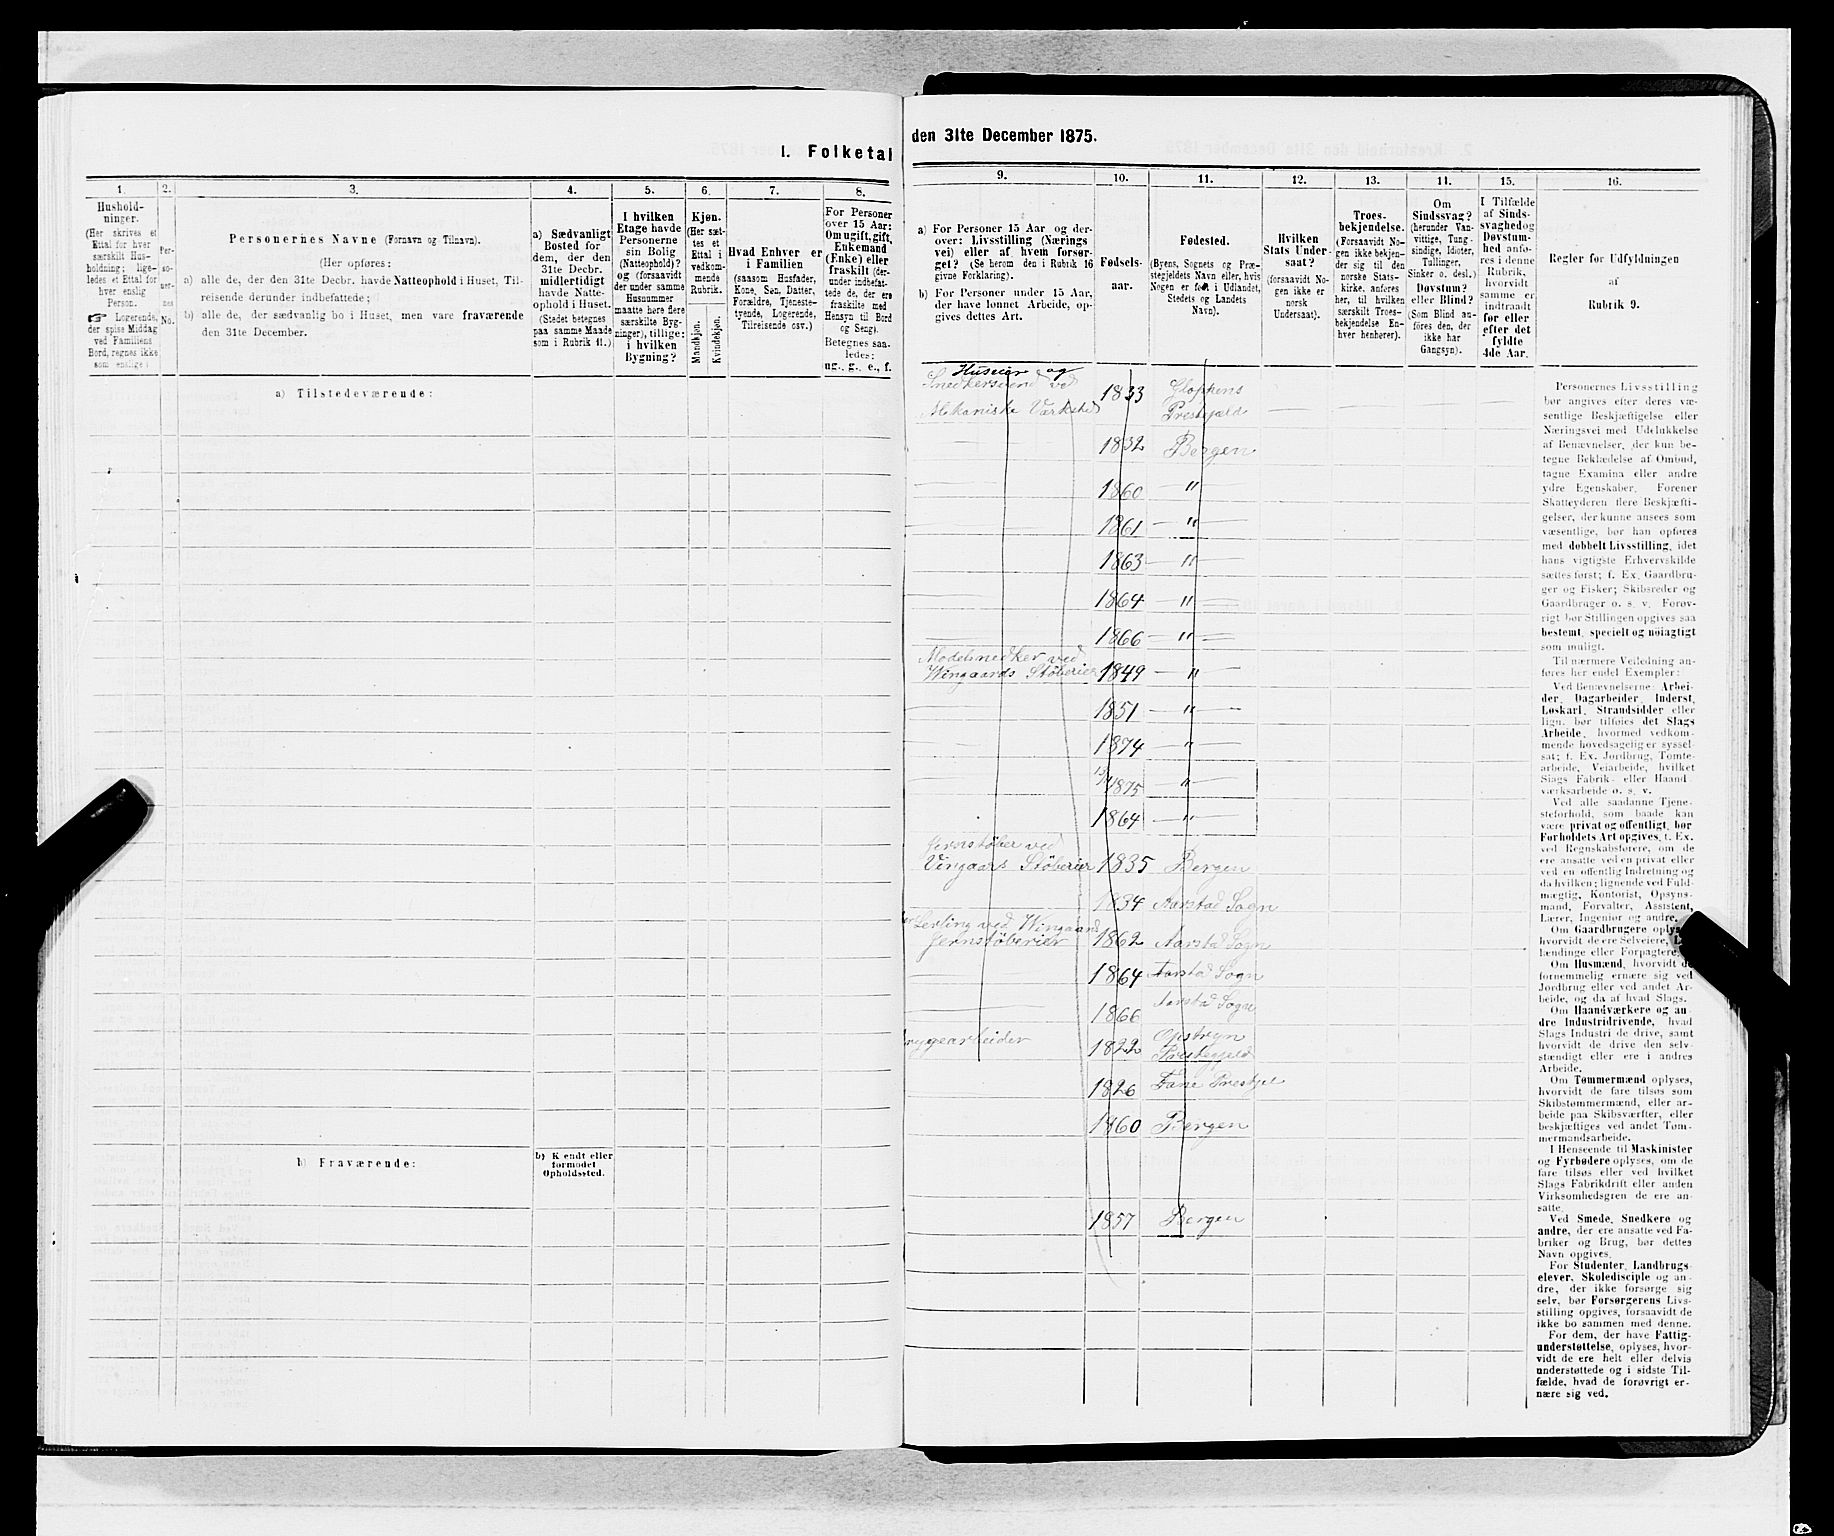 I. Folketal
den 31te December 1875.
1.
2.
3.
4.
5.
6.
7.
8.
Hushold-
ninger.
(Her skrives et
Ettal for hver
særskilt Hus-
holdning; lige-
ledes et Ettal for
hver enslig
Person.
☞ Logerende,
der spise Middag
ved Familiens
Bord, regnes ikke
som enslige.)
Per-
so-
ner-
nes
No.
Personernes Navne (Fornavn og Tilnavn).
(Her opføres:
a) alle de, der den 31te Decbr. havde Natteophold i Huset, Til-
reisende derunder indbefattede;
b) alle de, der sædvanlig bo i Huset, men vare fraværende
den 31te December.
a) Sædvanligt
Bosted for
dem, der den
31te Decbr.
midlertidigt
havde Natte-
ophold i Huset.
(Stedet betegnes
paa samme Maade
som i Rubrik 11.)
I hvilken
Etage havde
Personerne
sin Bolig
(Natteophold)?
og (forsaavidt
der under samme
Husnummer
maatte høre flere
særskilte Byg-
ninger), tillige:
i hvilken
Bygning?
Kjøn.
(Her sæt-
tes et
Ettal i
vedkom-
mende
Rubrik.
Mandkjøn.
Kvindekjøn.
Hvad Enhver er
i Familien
(saasom Husfader,
Kone, Søn, Datter,
Forældre, Tjeneste-
tyende, Logerende,
Tilreisende osv.)
For Personer
over 15 Aar:
Om ugift, gift,
Enkemand
(Enke) eller
fraskilt (der-
under indbefat-
tede de, der ere
fraskilte med
Hensyn til Bord
og Seng).
Betegnes saa-
ledes:
ug., g., e., f.
a) Tilstedeværende:
b) Fraværende:
b) Kjendt eller
formodet
Opholdssted.
9.
10.
11.
12.
13.
14.
15.
16.
a) For Personer 15 Aar og der-
over: Livsstilling (Nærings
vei) eller af hvem forsør-
get? (Se herom den i Rubrik 16
givne Forklaring).
b) For Personer under 15 Aar,
der have lønnet Arbeide, op-
gives dettes Art.
Fødsels-
aar.
Fødested.
(Byens, Sognets og Præ-
stegjeldets Navn eller, hvis
Nogen er født i Udlandet,
Stedets og Landets
Navn).
Hvilken
Stats Under-
saat?
(forsaavidt No-
gen ikke er
norsk
Undersaat).
Troes-
bekjendelse.
(Forsaavidt No-
gen ikke bekjen-
der sig til den
norske Stats-
kirke, anføres
her, til hvilken
særskilt Troes-
bekjendelse En-
hver henhører).
Om
Sindssvag?
(herunder Van-
vittige, Tung-
sindige, Idioter,
Tullinger,
Sinker o. desl.)
Døvstum?
eller Blind?
(Som Blind an-
føres den, der
ikke har
Gangsyn).
I Tilfælde
af Sinds-
svaghed og
Døvstum-
hed anfø-
res i denne
Rubrik,
hvorvidt
samme er
indtraadt
før eller
efter det
fyldte
4de Aar.
Regler for Udfyldningen
af
Rubrik 9.
Huseier og
Snedkersvend ved 1833 Gloppens
Mekaniske Værksted Prestegjæld
1832 Bergen
1860 — " —
1861 — " —
1863 — " —
1864 — " —
1866 — " —
Modelsnedker ved
Wingaards Støberier 1849 — " —
1851 — " —
1874 — " —
1875 — " —
1864 — " —
Jernstøber ved
Vingaars Støberier 1835 Bergen
1834 Aarstad Sogn
Lerling ved Wingaards
Jernstøberier 1862 Aarstad Sogn
1864 Aarstad Sogn
1866 Aarstad Sogn
Bryggearbeider 1822 Opstryn
Prestegjeld
1826 Fane Prestgjel
1860 Bergen
1857 Bergen
Personernes Livsstilling
bør angives efter deres væ-
sentlige Beskjæftigelse eller
Næringsvei med Udelukkelse
af Benævnelser, der kun be-
tegne Beklædelse af Ombud,
tagne Examina eller andre
ydre Egenskaber. Forener
Skatteyderen flere Beskjæfti-
gelser, der kunne ansees som
væsentlige, bør han opføres
med dobbelt Livsstilling, idet
hans vigtigste Erhvervskilde
sættes først; f. Ex. Gaardbru-
ger og Fisker; Skibsreder og
Gaardbruger o. s. v. Forøv-
rigt bør Stillingen opgives saa
bestemt, specielt og nøiagtigt
som muligt.
Til nærmere Veiledning an-
føres her endel Exempler:
Ved Benævnelserne: Arbei-
der, Dagarbeider, Inderst,
Løskarl, Strandsidder eller
lign. bør tilføies det Slags
Arbeide, hvormed vedkom-
mende hovedsagelig er syssel-
sat; f. Ex. Jordbrug, Tomte-
arbeide, Veiarbeide, hvilket
Slags Fabrik- eller Haand-
værksarbeide o. s. v.
Ved alle saadanne Tjene-
steforhold, som baade kan
være privat og offentligt, bør
Forholdets Art opgives, t. Ex.
ved Regnskabsførere, om de
ere ansatte ved en privat eller
ved en offentlig Indretning og
da hvilken; lignende ved Fuld-
mægtig, Kontorist, Opsyns-
mand, Forvalter, Assistent,
Lærer, Ingeniør og andre.
Om Gaardbrugere oplyses,
hvorvidt de ere Selveiere,
lændinge eller Forpagtere.
Om Husmænd, hvorvidt de
fornemmelig ernære sig ved
Jordbrug eller ved andet Ar-
beide, og da af hvad Slags.
Om Haandværkere og an-
dre Industridrivende, hvad
Slags Industri de drive, samt
hvorvidt de drive den selv-
stændigt eller ere i andres
Arbeide.
Om Tømmermænd oplyses,
hvorvidt de fare tilsøs som
Skibstømmermænd, eller ar-
beide paa Skibsværfter, eller
beskjæftiges ved andet Tøm-
mermandsarbeide.
I Henseende til Maskinister
og Fyrbødere oplyses, om de
fare tilsøs eller ved hvilket
Slags Fabrikdrift eller anden
Virksomhedsgren de ere an-
satte.
Ved Smede, Snedkere og
andre, der ere ansatte ved Fa-
briker og Brug, bør dettes
Navn opgives.
For Studenter, Landbrugs-
elever, Skoledisciple og an-
dre, der ikke forsørge sig
selv, bør Forsørgerens Livs-
stilling opgives, forsaavidt de
ikke bo sammen med denne.
For dem, der have Fattig-
understøttelse, oplyses, hvor-
vidt de ere helt eller delvis
understøttede og i sidste Til-
fælde, hvad de forøvrigt er-
nære sig ved.